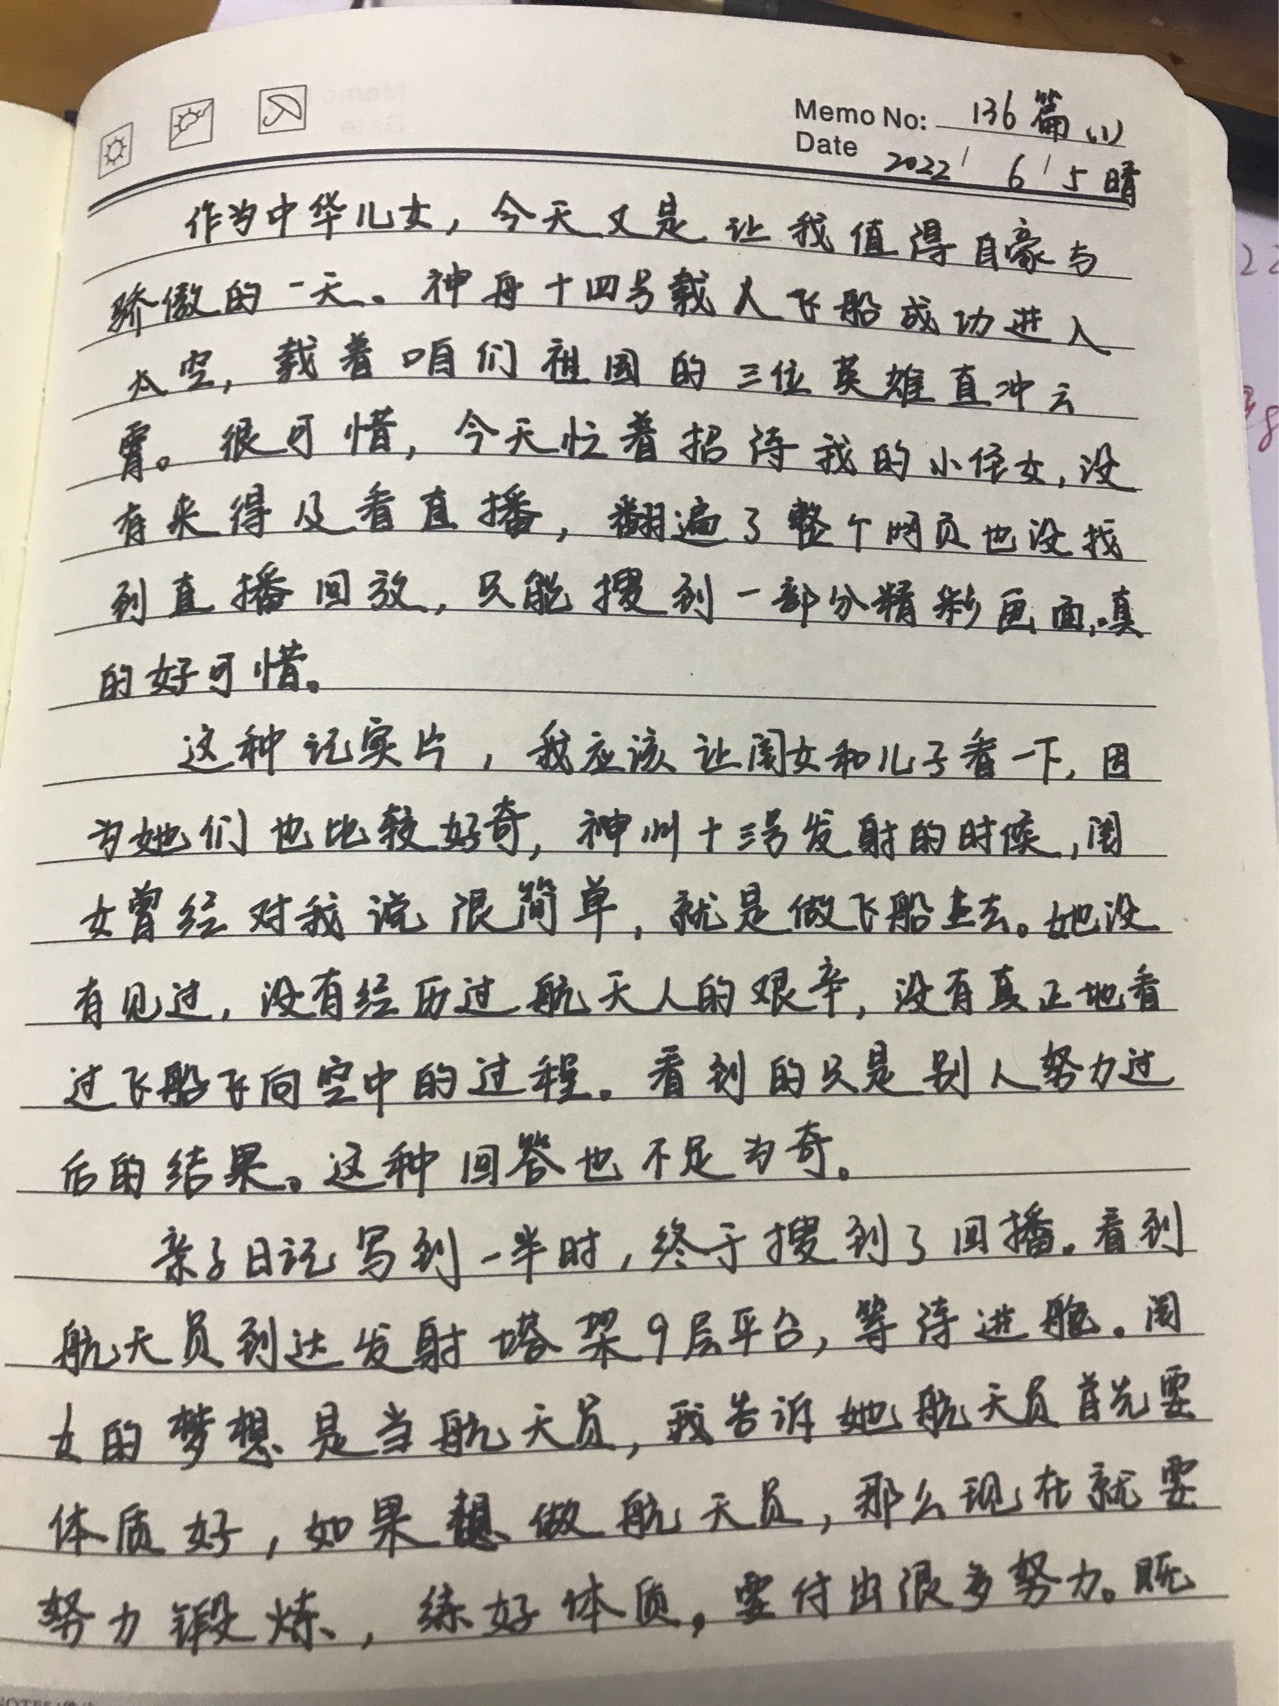 Memo No: 136篇(1)
Date 2022/6/5 晴
作为中华儿女，今天又是让我值得自豪与
骄傲的一天。神舟十四号载人飞船成功进入
太空，载着咱们祖国的三位英雄直冲云
霄。很可惜，今天忙着招待我的小侄女，没
有来得及看直播，翻遍了整个网页也没找
到直播回放，只能搜到一部分精彩画面，真
的好可惜。
这种记实片，我应该让闺女和儿子看一下，因
为她们也比较好奇，神州十三号发射的时候，闺
女曾经对我说很简单，就是做飞船上去。她没
有见过，没有经历过航天人的艰辛，没有真正地看
过飞船飞向空中的过程。看到的只是别人努力过
后的结果。这种回答也不足为奇。
亲子日记写到一半时，终于搜到了回播。看到
航天员到达发射塔架9层平台，等待进舱。闺
女的梦想是当航天员，我告诉她航天员首先要
体质好，如果想做航天员，那么现在就要
努力锻炼，练好体质，要付出很多努力。既